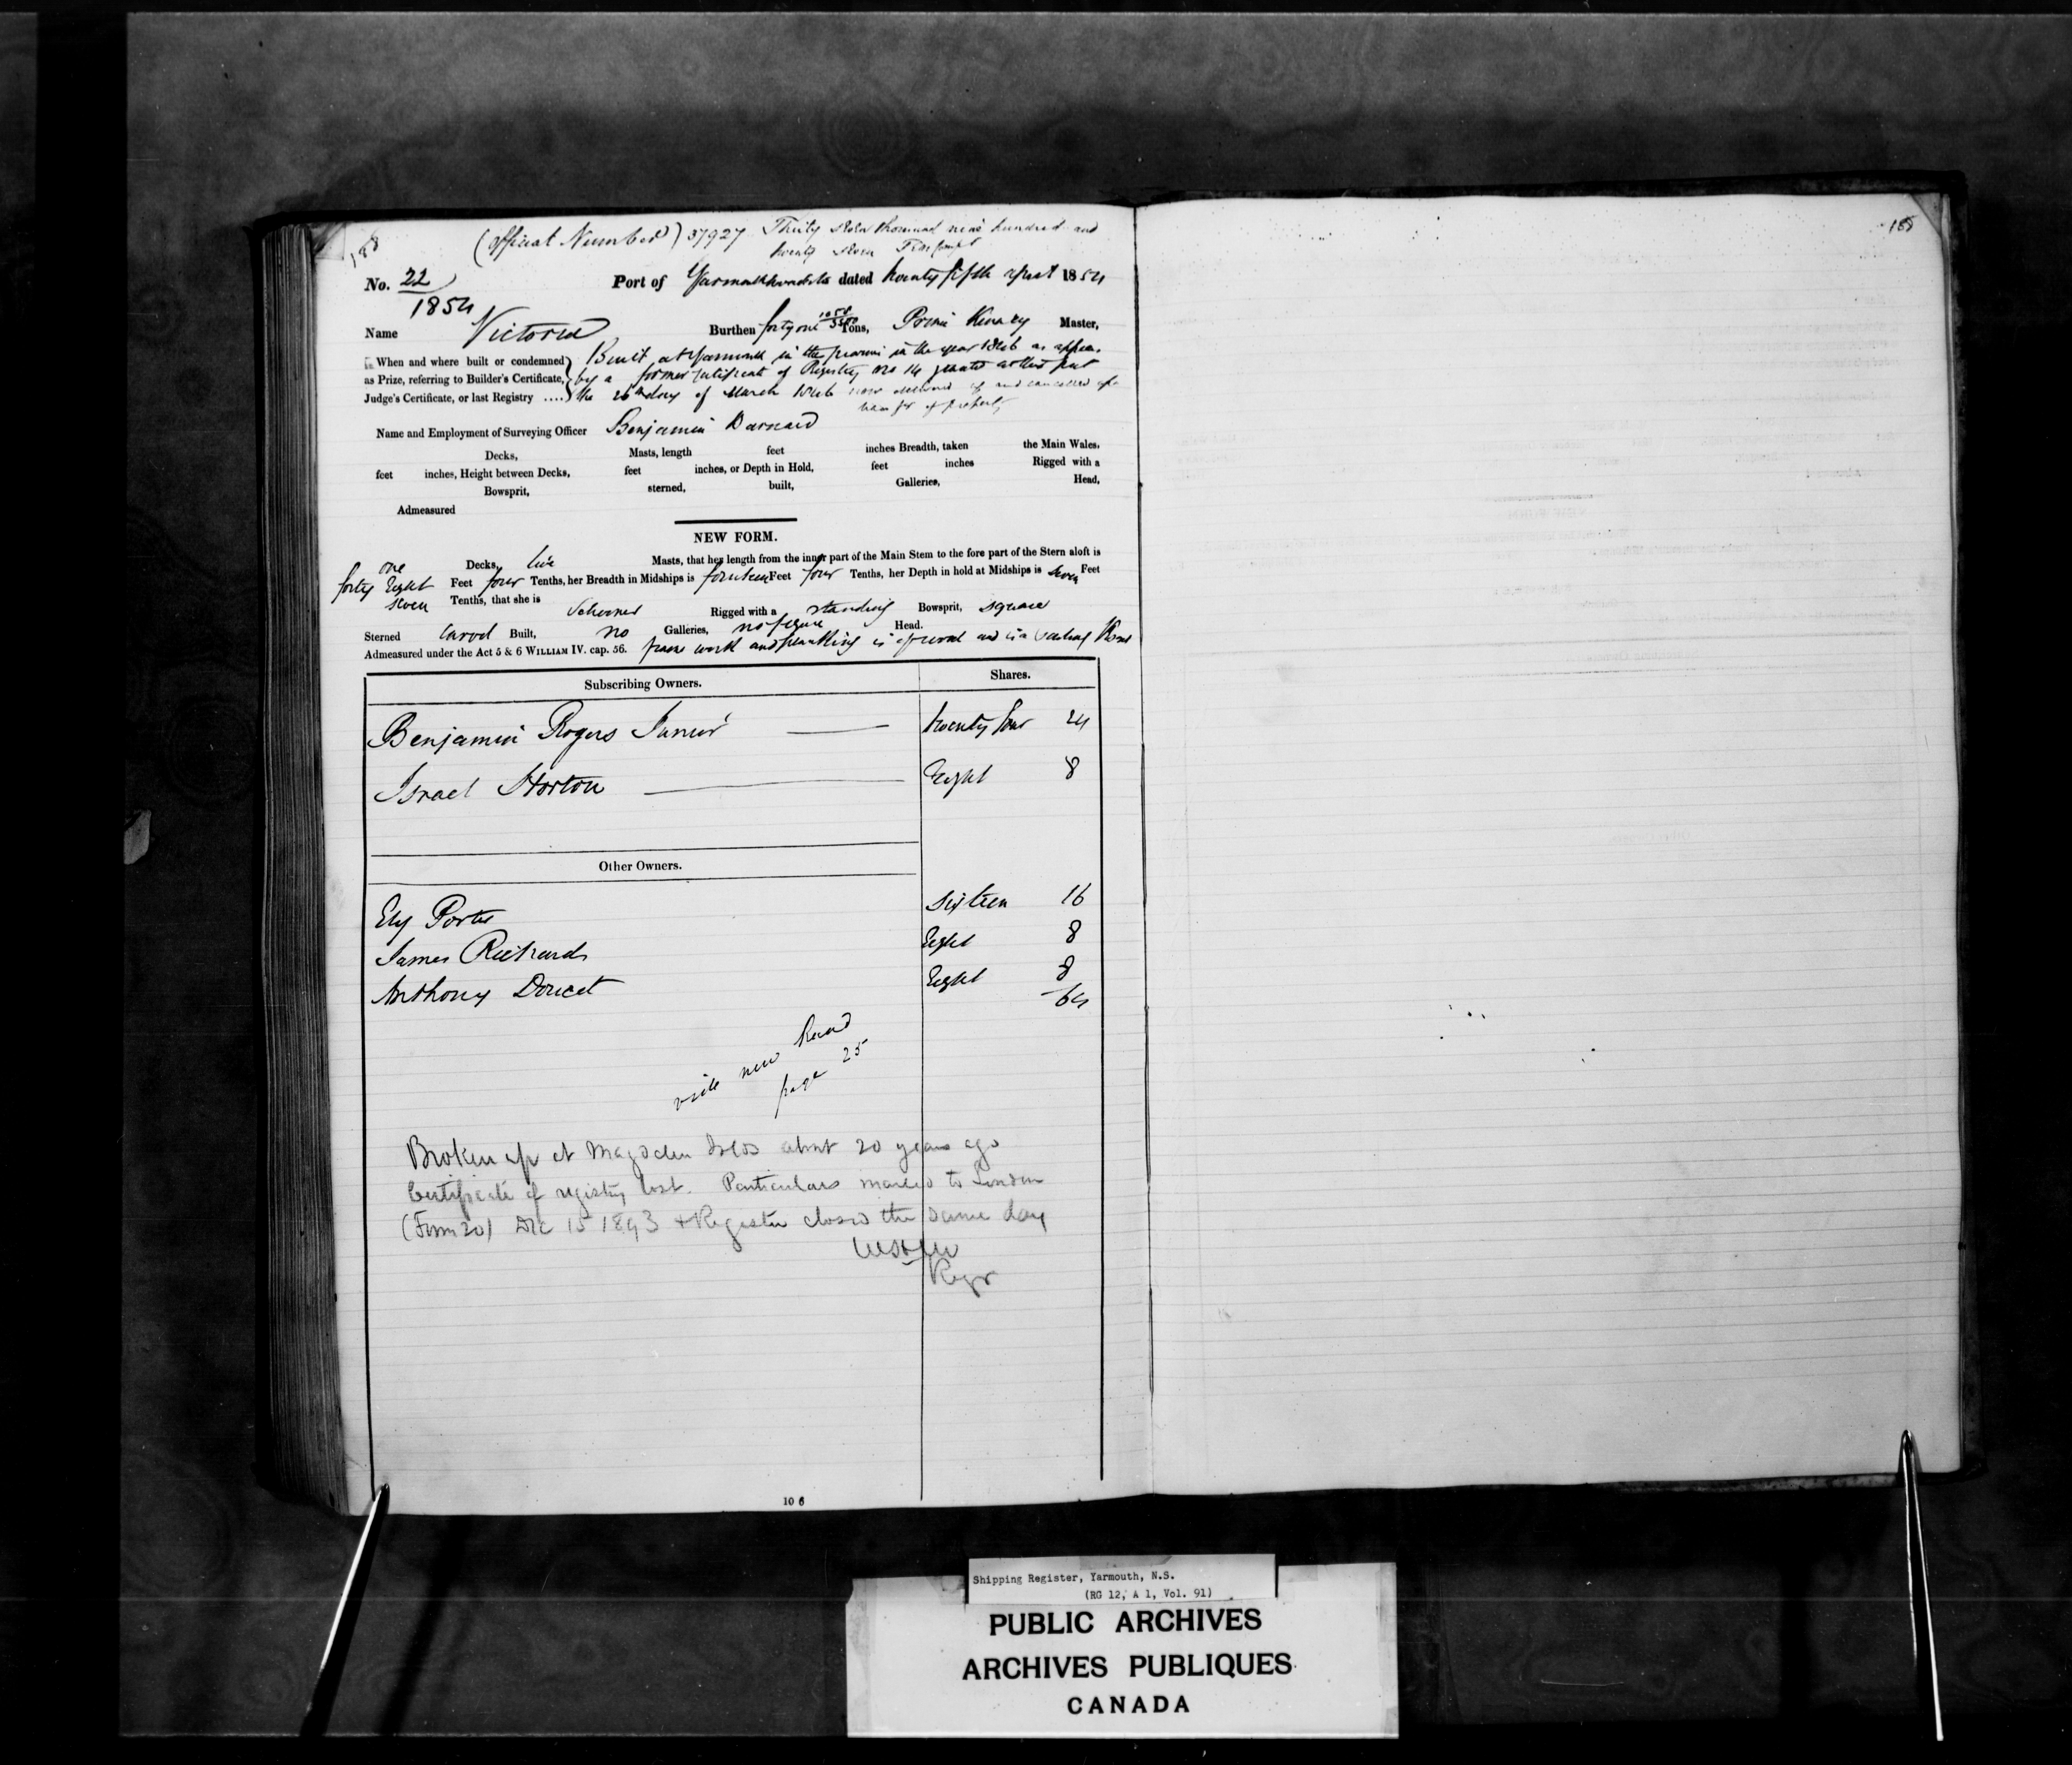 188
(Official Number) 37927 Thirty seven thousand nine hundred and
twenty seven
No. 22
1854
Port of Yarmouth dated twenty fifth 1854
Name Victoria Burthen forty one 1058/3500 Tons, Kinney Master,
When and where built or condemned Built at Yarmouth in the in the year 1846 as
as Prize, referring to Builder's Certificate, by a former Certificate of Registry No 14 granted at this port
Judge's Certificate, or last Registry .... the 26th day of March 1846 now delivered up and cancelled
transfer of property
Name and Employment of Surveying Officer Benjamin Barnard
Decks, Masts, length feet inches Breadth, taken the Main Wales.
feet inches, Height between Decks, feet inches, or Depth in Hold, feet inches Rigged with a
Bowsprit, sterned, built, Galleries, Head,
Admeasured
NEW FORM.
one Decks, two Masts, that her length from the inner part of the Main Stem to the fore part of the Stern aloft is
forty Eight Feet four Tenths, her Breadth in Midships is fourteen Feet four Tenths, her Depth in hold at Midships is seven Feet
seven Tenths, that she is Schooner Rigged with a standing Bowsprit, square
Sterned Carvel Built, no Galleries, no figure Head.
Admeasured under the Act 5 & 6 WILLIAM IV. cap. 56. frame work and planking is of wood and is a sailing
Subscribing Owners. Shares.
Benjamin Rogers Junior twenty four 24
Israel Horton Eight 8
Other Owners.
Ely Porter sixteen 16
James Richards Eight 8
Anthony Doucet Eight 8
64
vide new
page 25
Broken up at Magdalen Islds about 20 years ago
Certificate of registry lost. Particulars mailed to London
(Form 20) Dec 15 1893 & Register closed the same day
Regr
10 6
188
Shipping Register, Yarmouth, N.S.
(RG 12, A 1, Vol. 91)
PUBLIC ARCHIVES
ARCHIVES PUBLIQUES
CANADA